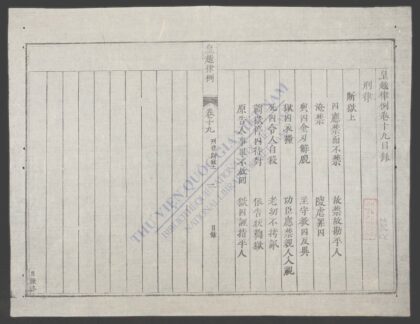 皇越律例卷十九目錄
刑律
斷獄上
囚應禁而不禁 故禁故勘平人
淹禁 陵虐罪囚
與囚金刃解脫 主守教囚反異
獄囚衣糧 功臣應禁親人入視
死囚令人自殺 老幼不拷訊
鞫獄停囚待對 依告狀鞫獄
原告人事畢不放回 獄囚誣指平人
皇越律例 卷十九 刑律 目錄
THƯ VIỆN QUỐC GIA VIỆT NAM
NATIONAL LIBRARY